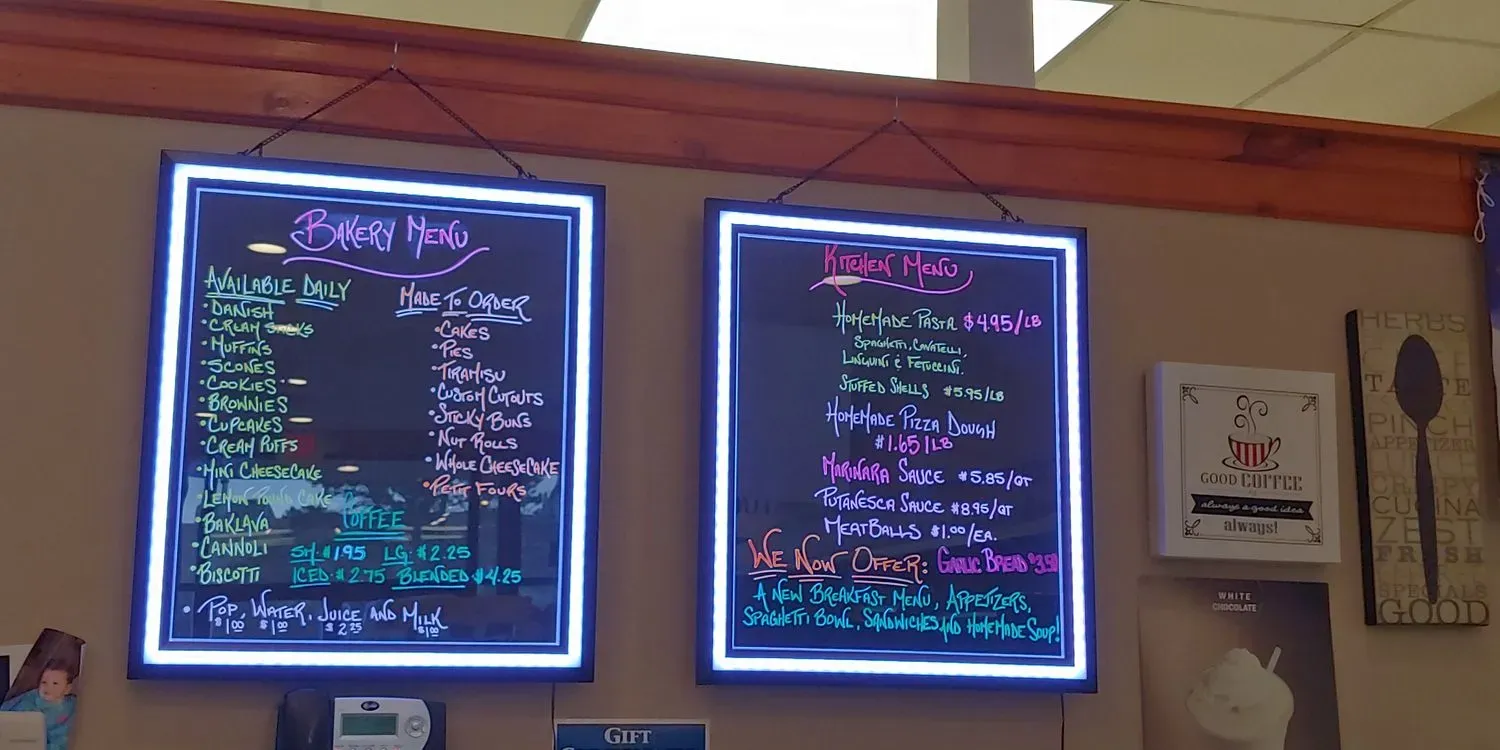 BAKERY MENU
AVAILABLE DAILY
• DANISH
• CREAM STICKS
• MUFFINS
• SCONES
• COOKIES
• BROWNIES
• CUPCAKES
• CREAM PUFFS
• MINI CHEESECAKE
• LEMON POUND CAKE
• BAKLAVA
• CANNOLI
• BISCOTTI
MADE TO ORDER
• CAKES
• PIES
• TIRAMISU
• CUSTOM CUTOUTS
• STICKY BUNS
• NUT ROLLS
• WHOLE CHEESECAKE
• PETIT FOURS
COFFEE
SM. $1.95 LG. $2.25
ICED $2.75 BLENDED $4.25
• POP, WATER, JUICE AND MILK
$1.00 $1.00 $2.25 $1.00
KITCHEN MENU
HOMEMADE PASTA $4.95/LB
SPAGHETTI, CAVATELLI,
LINGUINI & FETUCCINI.
STUFFED SHELLS $5.95/LB
HOMEMADE PIZZA DOUGH
$1.65/LB
MARINARA SAUCE $5.85/QT
PUTANESCA SAUCE $8.95/QT
MEATBALLS $1.00/EA.
WE NOW OFFER: GARLIC BREAD $3.50
A NEW BREAKFAST MENU, APPETIZERS,
SPAGHETTI BOWL, SANDWICHES AND HOMEMADE SOUP!
GOOD COFFEE
always a good idea
always!
HERBS
TASTE
PINCH
APPETIZER
LUNCH
CRISPY
CUCINA
ZEST
FRESH
SPECIALS
GOOD
WHITE
CHOCOLATE
GIFT